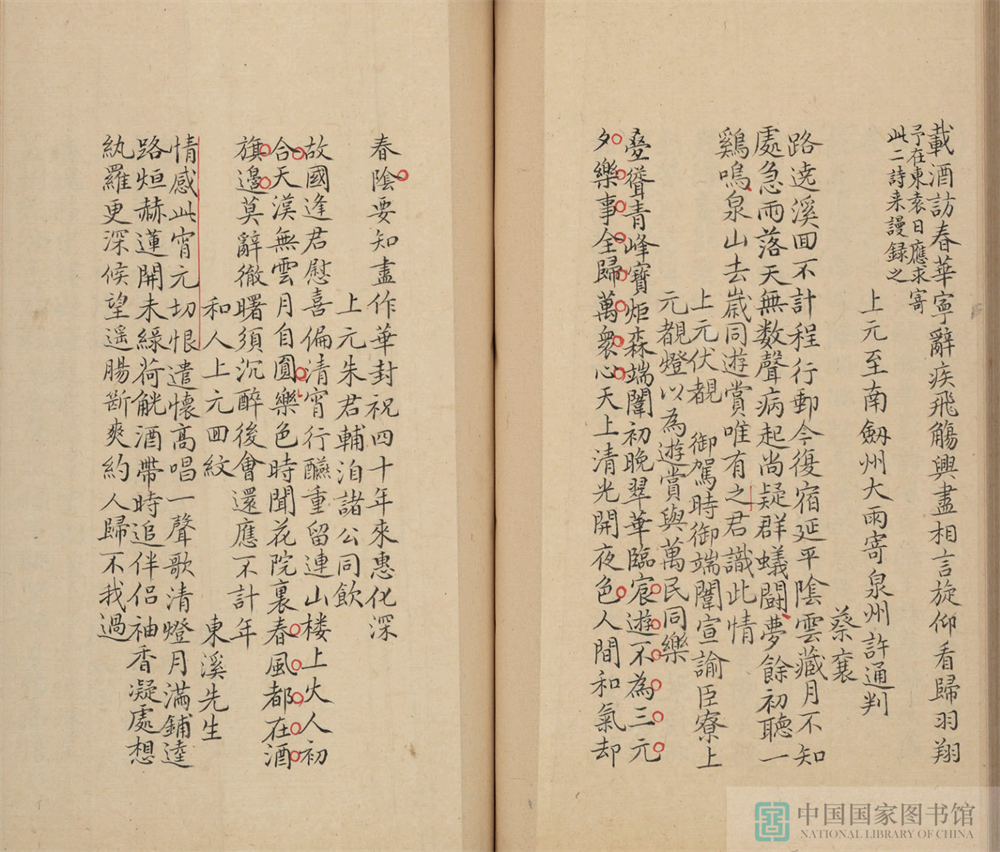 載酒訪春華寧辭疾飛觴興盡相言旋仰看歸羽翔
予在東袁日應求寄
此二詩来謾録之
上元至南劔州大雨寄泉州許通判
蔡襄
路遶溪回不計程行郵今復宿延平陰雲藏月不知
處急雨落天無数聲病起尚疑群蟻闘夢餘初聴一
鷄鳴泉山去歳同遊賞唯有之君識此情
上元伏覩　御駕時御端闈宣諭臣寮上
元覩燈以為遊賞與萬民同樂
叠聳青峰寶炬森端闈初晚翠華臨宸遊不為三元
夕樂事全歸萬衆心天上清光開夜色人間和氣却
春陰要知盡作華封祝四十年來惠化深
上元朱君輔洎諸公同飲
故國逢君慰喜偏清宵行醼重留連山楼上火人初
合天漢無雲月自圓樂色時聞花院裏春風都在酒
旗邊莫辭徹曙須沉醉後會還應不計年
和人上元回紋
東溪先生
情感此宵元切恨遣懷高唱一聲歌清燈月滿鋪逵
路烜赫蓮開未緑荷觥酒帶時追伴侣袖香凝處想
紈羅更深候望遥腸斷爽約人歸不我過
中国国家图书馆
NATIONAL LIBRARY OF CHINA